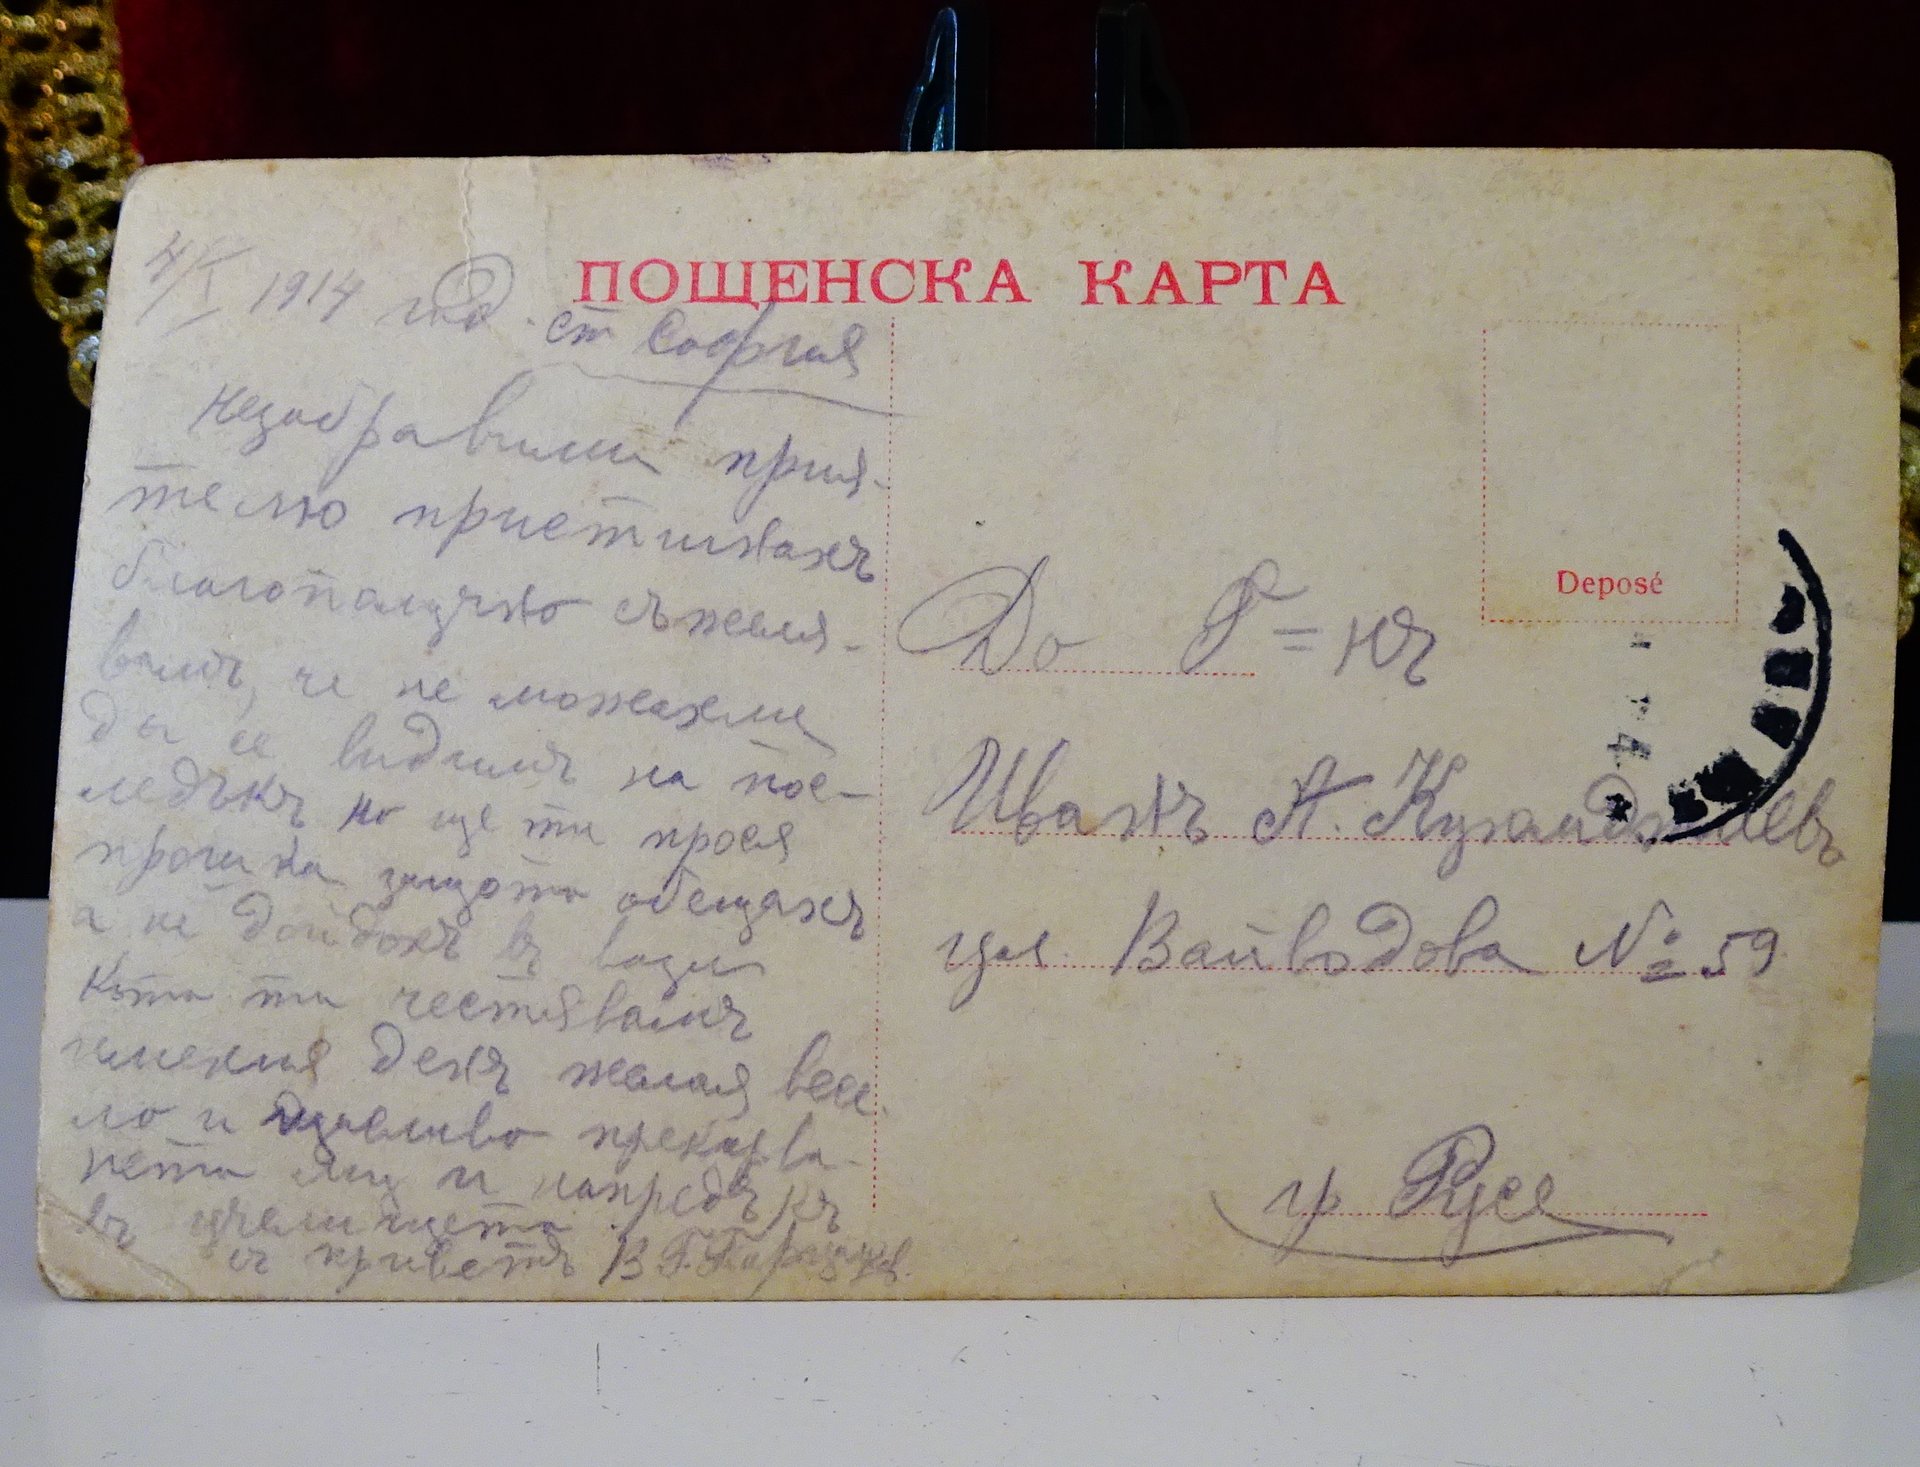 ПОЩЕНСКА КАРТА
4/I 1914 год. ст София
Незабравими прия-
телю пристигнахъ
благополучно съжеля-
вамъ, че не можахме
да се видимъ на пос-
ледъкъ но ще ти прося
прошка защото обещахъ
а не дойдохъ въ
Къто ти честявамъ
имения день желая весе-
ло и щасливо прекарва-
нето му и напредъкъ
въ училището
съ приветъ В. Г.
Deposé
До Г=нъ
Иванъ А. Куюмджиевъ
ул. Вайводова № 59
гр Русе